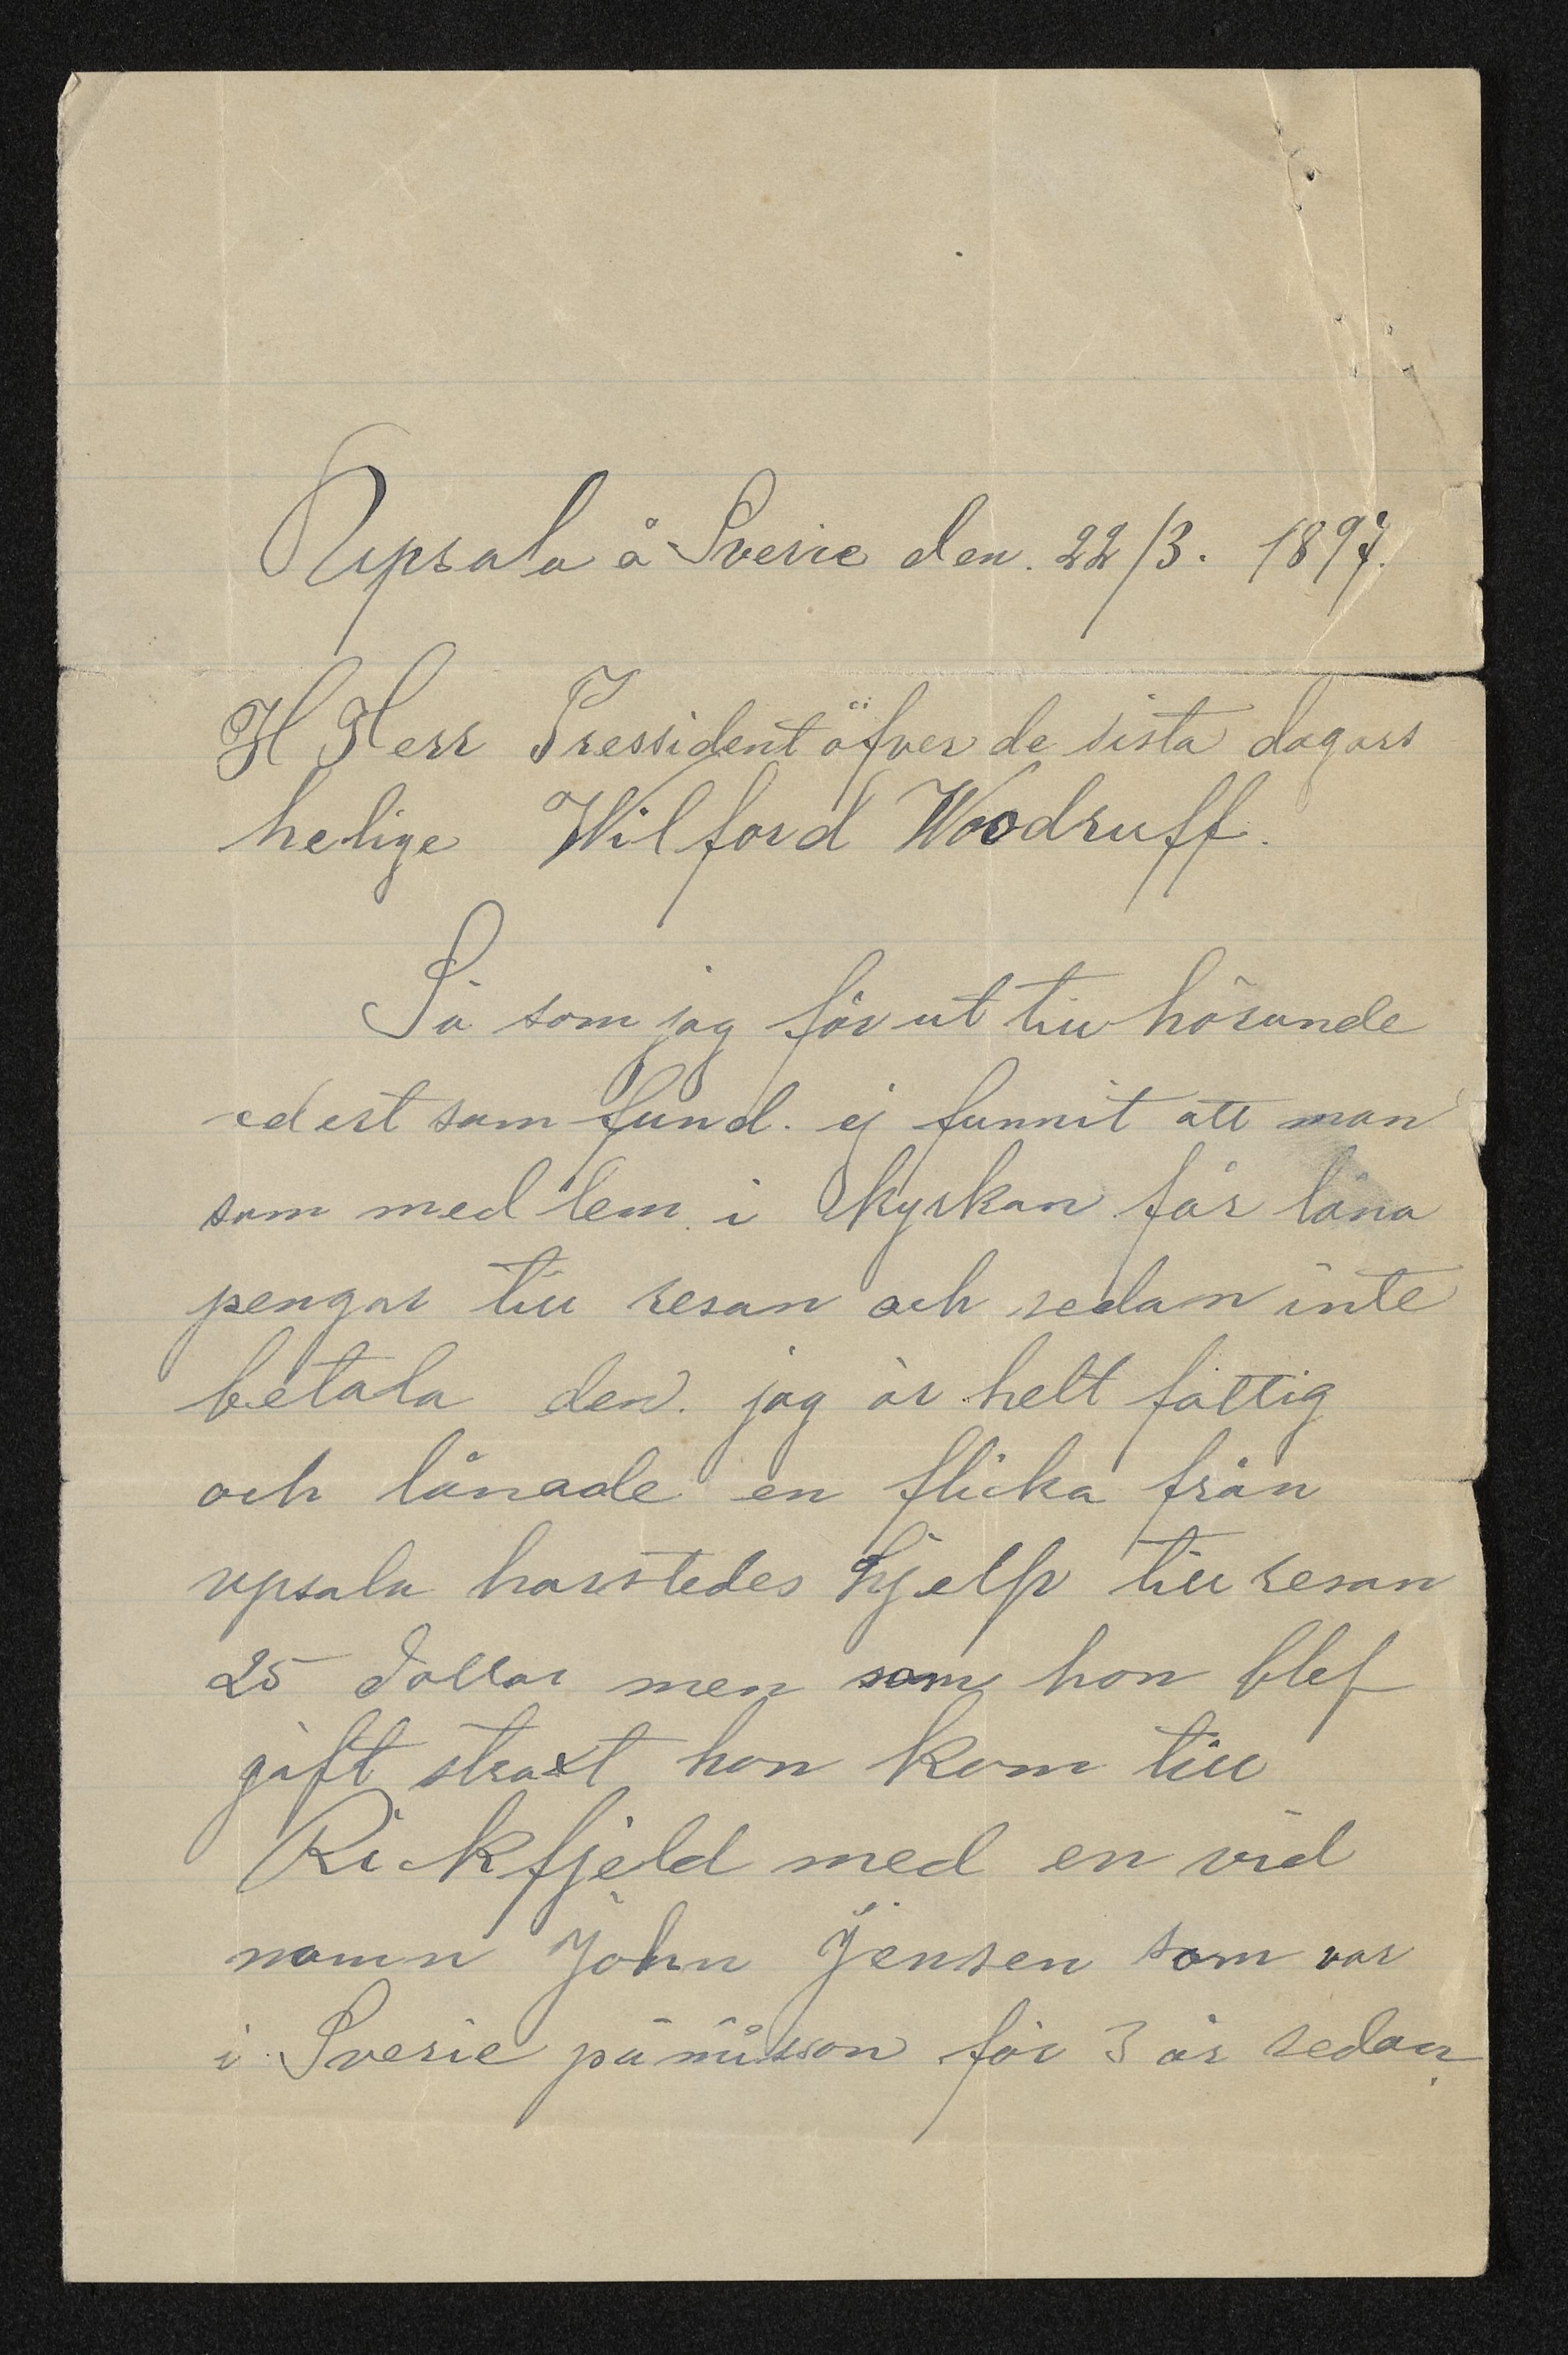 Upsala å Sverie den. 22/3. 1897.
H Herr Pressident öfver de sista dagars
helige Wilford Woodruff.
Så som jag för ut till hörande
edert sam fund. ej funnit att man
som med lem i kyrkan får låna
pengar till resan och sedan inte
betala den. jag är helt fattig
och lånade en flicka från
upsala harstedes hjelp till resan
25 dollar men som hon blef
gift straxt hon kom till
Rickfjeld med en vid
namn John Jensen som var
i Sverie på misson för 3 år sedan